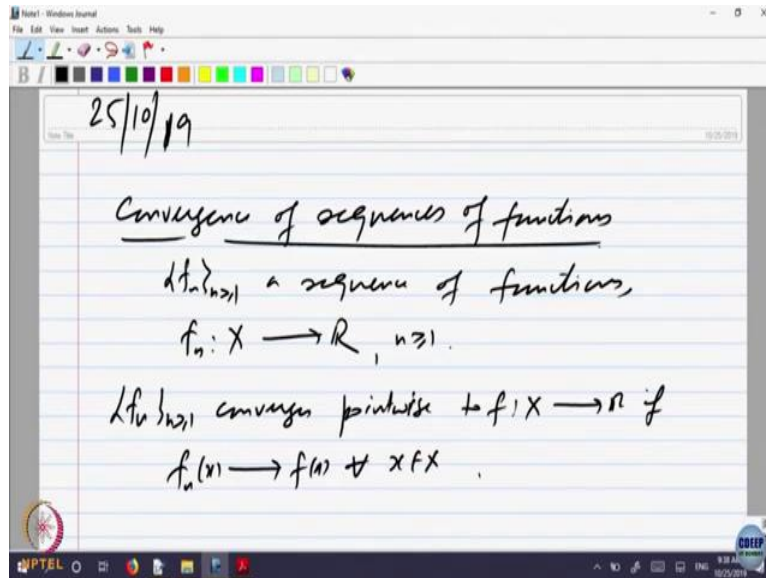 Note1 - Windows Journal
File Edit View Insert Actions Tools Help
B I
25/10/19
Note Title
10/25/2019
Convergence of sequences of functions
{fₙ}ₙ≥₁ a sequence of functions,
fₙ : X ⟶ ℝ, n≥1.
{fₙ}ₙ≥₁ converges pointwise to f : X ⟶ ℝ if
fₙ(x) ⟶ f(x) ∀ x∈X.
NPTEL
CDEEP
IIT BOMBAY
ENG
9:38 AM
10/25/2019